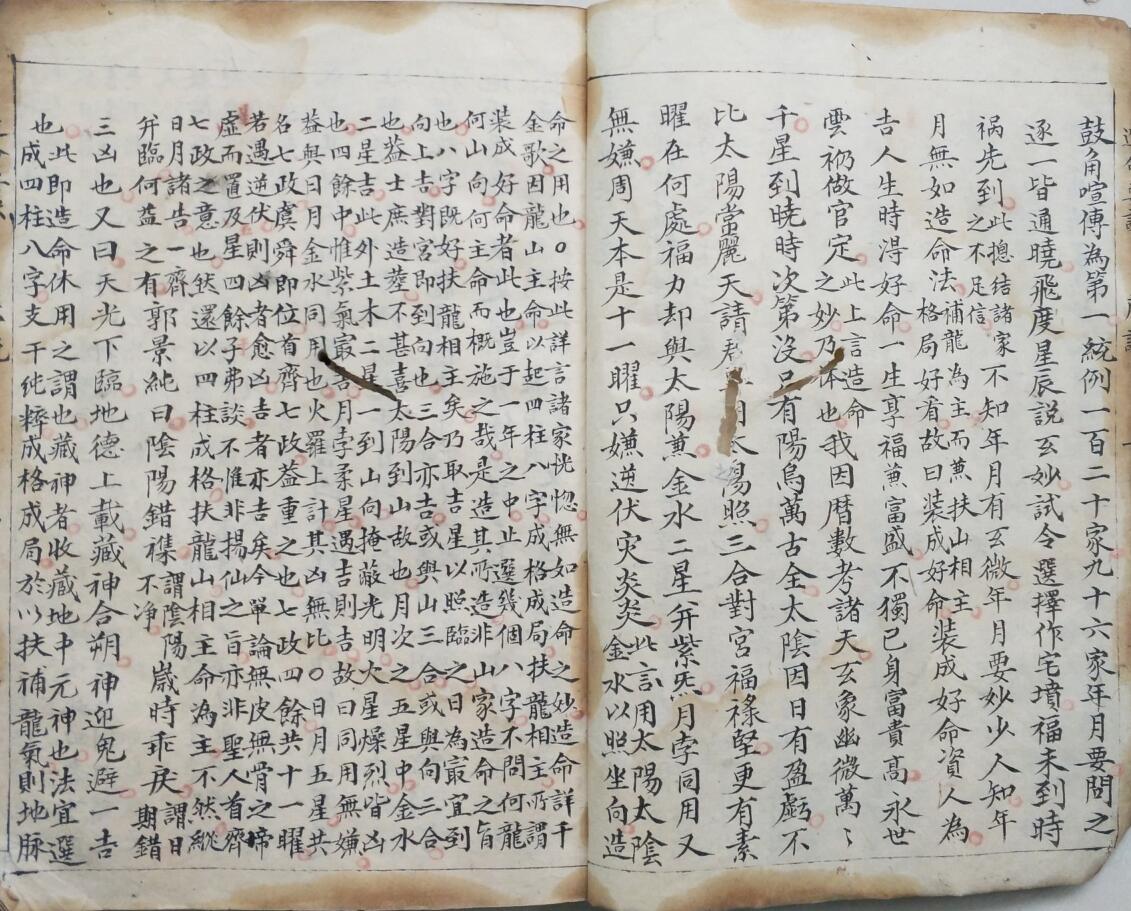 鼓角喧傳為第一統例一百二十家九十六家年月要問之
逐一皆通曉飛度星辰説玄妙試令選擇作宅墳福未到時
祸先到此摠結諸家不知年月有玄微年月要妙少人知年
之不足信
月無如造命法補龍為主而蒹扶山相主
格局好着故曰裝成好命裝成好命資人為
吉人生時淂好命一生享福蒹富盛不獨已身富貴高永世
雲礽做官定此上言造命
之妙乃体也我因曆數考諸天玄象幽微萬〻
千星到曉時次第沒只有陽烏萬古全太陰因日有盈虧不
比太陽常麗天請君太陽照三合對宮福祿堅更有素
曜在何處福力却與太陽蒹金水二星并紫炁月孛同用又
無嫌周天本是十一曜只嫌逆伏灾炎炎此言用太陽太陰
金水以照坐向造
命之用也○按此詳言諸家恍惚無如造命之妙造命詳千
金歌因龍山主命以起四柱八字成格成局扶龍相主所謂
裝成好命者此也豈于一年之中止選幾個八字不問何龍
何山何向何主命而概施之哉是造其所造非山家造命之旨
也八字既好扶龍相主矣乃取吉星以照臨之日為冣宜到
向上吉對宮即到向也三合亦吉或與山三合或與向三合
也葢士庶造塟不甚喜太陽到山故也月次之五星中金水
二星吉此外土木二星一到山向掩蔽光明火星燥烈皆凶
也四餘中惟紫氣冣吉月孛柔星遇吉則吉故曰同用無嫌
葢與日月金水同用也火羅上計其凶無比○日月五星共
名七政虞舜即位首齊七政葢重之也七政四餘共十一曜
若遇逆伏則凶者愈凶吉者亦吉矣今單論無皮無骨之啼
虛而置及星四餘子弗談不惟非揚仙之旨亦非聖人首齊
七政之意也然還以四柱成格扶龍山相主命為主不然縱
日月諸吉一齊
并臨何益之有郭景純曰陰陽錯襍謂陰陽
不净歲時乖戾謂日
期錯
三凶也又曰天光下臨地德上載藏神合朔神迎鬼避一吉
也此即造命休用之謂也藏神者收藏地中元神也法宜選
成四柱八字支干純粹成格成局於以扶補龍氣則地脉